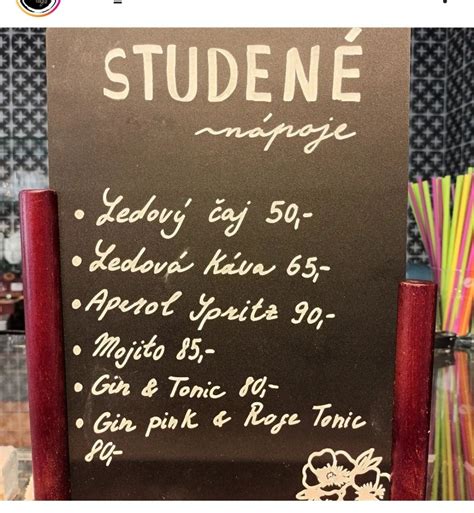 STUDENÉ
nápoje
• Ledový čaj 50,-
• Ledová káva 65,-
• Aperol Spritz 90,-
• Mojito 85,-
• Gin & Tonic 80,-
• Gin pink & Rose Tonic
80,-